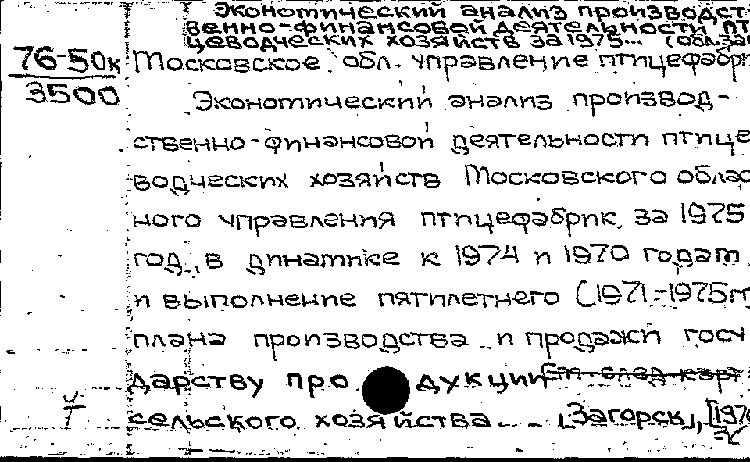 Экономический анализ производст-
венно-финансовой деятельности пти
цеводческих хозяйств за 1975...
76-50к Московское обл. управление птицефабри
3500
Экономический анализ производ-
ственно-финансовой деятельности птице
водческих хозяйств Московского облас
ного управления птицефабрик за 1975
год, в динамике к 1974 и 1970 годам
и выполнение пятилетнего (1971-1975гг
плана производства и продажи госу
дарству продукции
сельского хозяйства... Загорск, [197